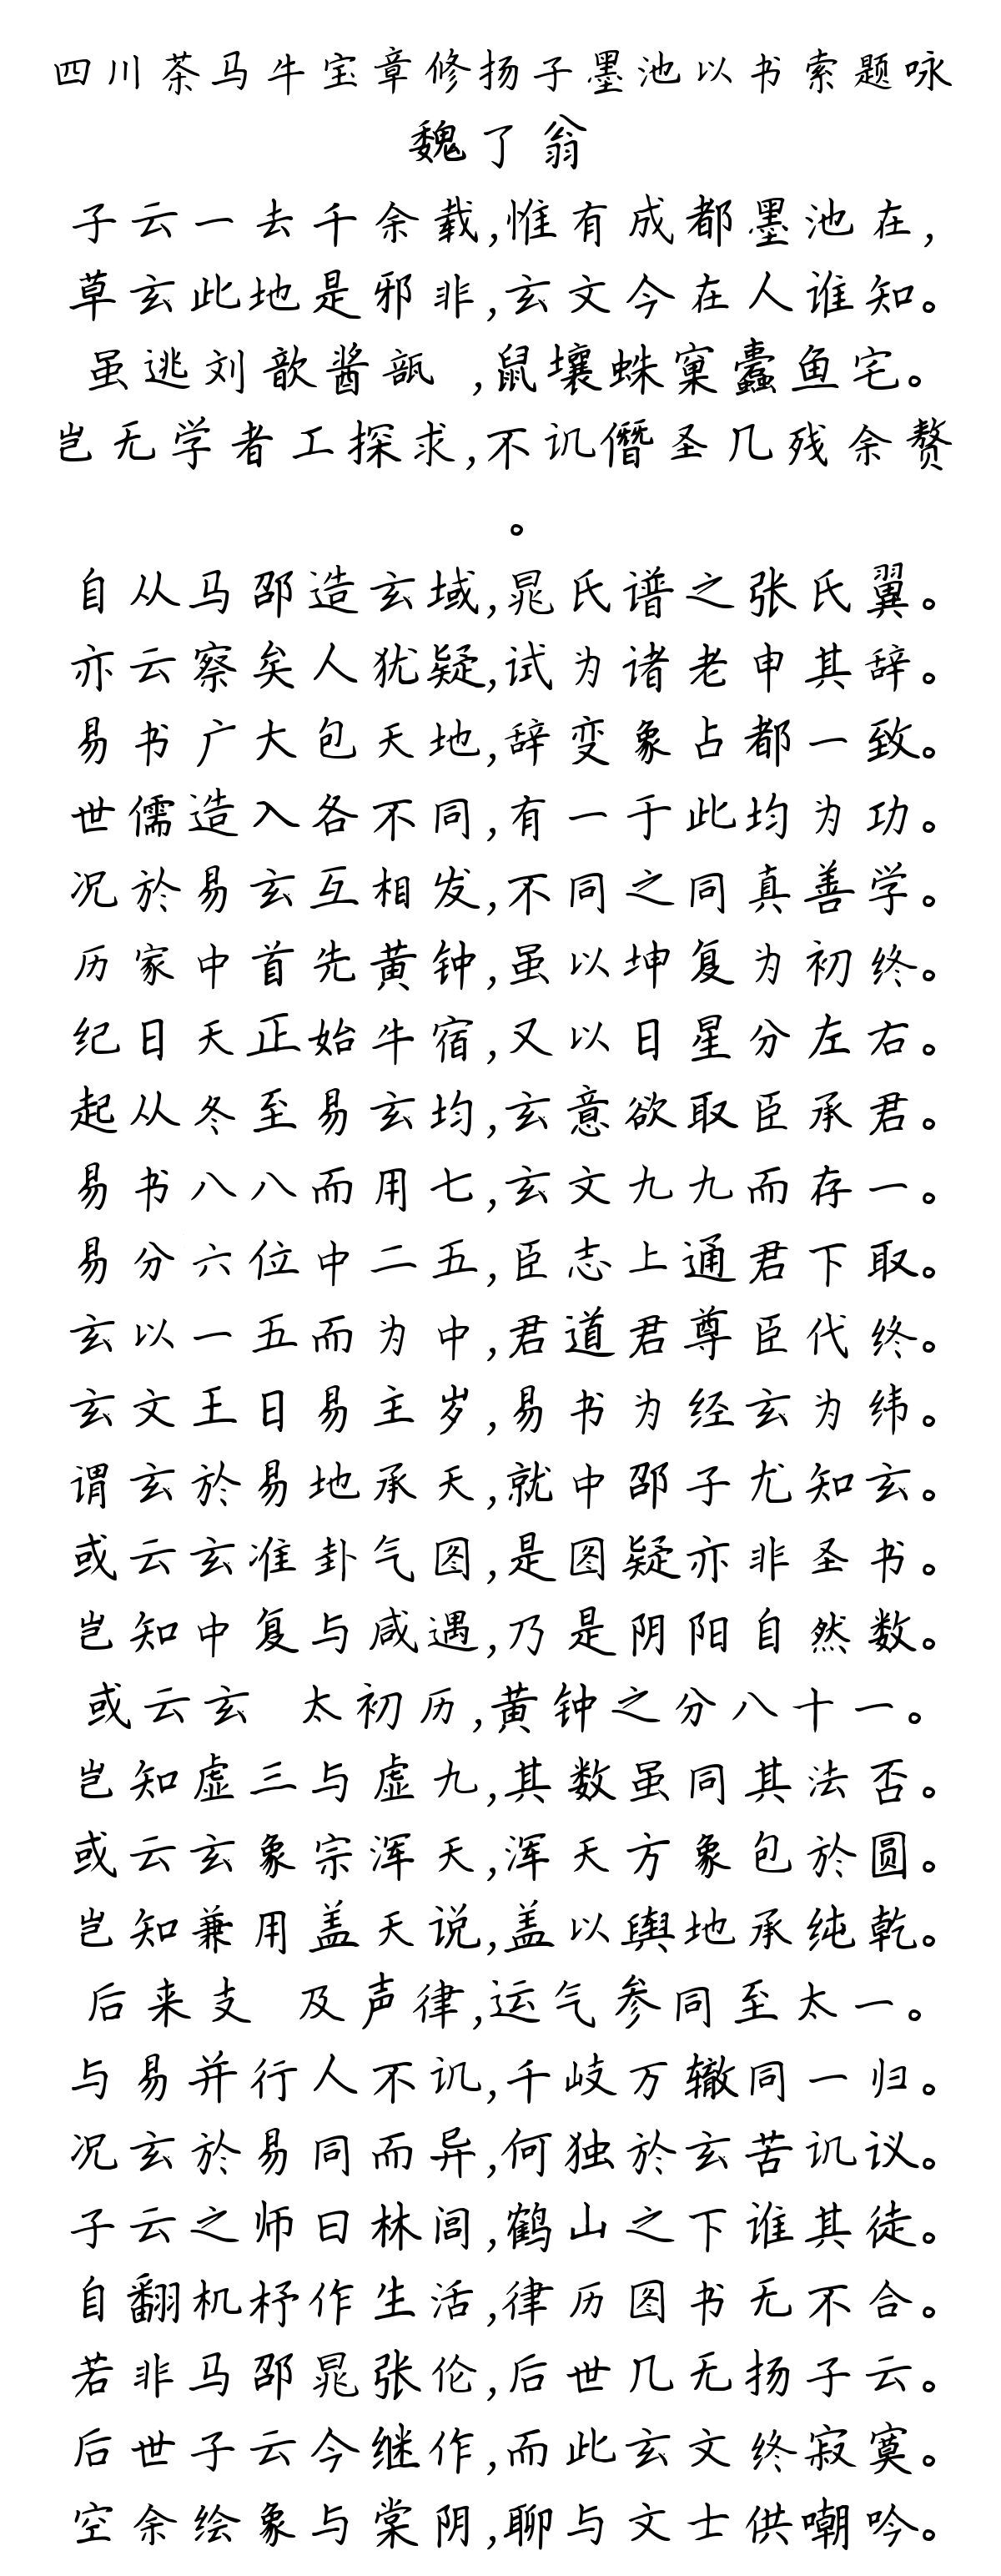 四川茶马牛宝章修扬子墨池以书索题咏
魏了翁
子云一去千余载,惟有成都墨池在,
草玄此地是邪非,玄文今在人谁知。
虽逃刘歆酱瓿 ,鼠壤蛛窠蠹鱼宅。
岂无学者工探求,不讥僭圣几残余赘
。
自从马邵造玄域,晁氏谱之张氏翼。
亦云察矣人犹疑,试为诸老申其辞。
易书广大包天地,辞变象占都一致。
世儒造入各不同,有一于此均为功。
况於易玄互相发,不同之同真善学。
历家中首先黄钟,虽以坤复为初终。
纪日天正始牛宿,又以日星分左右。
起从冬至易玄均,玄意欲取臣承君。
易书八八而用七,玄文九九而存一。
易分六位中二五,臣志上通君下取。
玄以一五而为中,君道君尊臣代终。
玄文王日易主岁,易书为经玄为纬。
谓玄於易地承天,就中邵子尤知玄。
或云玄准卦气图,是图疑亦非圣书。
岂知中复与咸遇,乃是阴阳自然数。
或云玄 太初历,黄钟之分八十一。
岂知虚三与虚九,其数虽同其法否。
或云玄象宗浑天,浑天方象包於圆。
岂知兼用盖天说,盖以舆地承纯乾。
后来支 及声律,运气参同至太一。
与易并行人不讥,千岐万辙同一归。
况玄於易同而异,何独於玄苦讥议。
子云之师曰林闾,鹤山之下谁其徒。
自翻机杼作生活,律历图书无不合。
若非马邵晁张伦,后世几无扬子云。
后世子云今继作,而此玄文终寂寞。
空余绘象与棠阴,聊与文士供嘲吟。